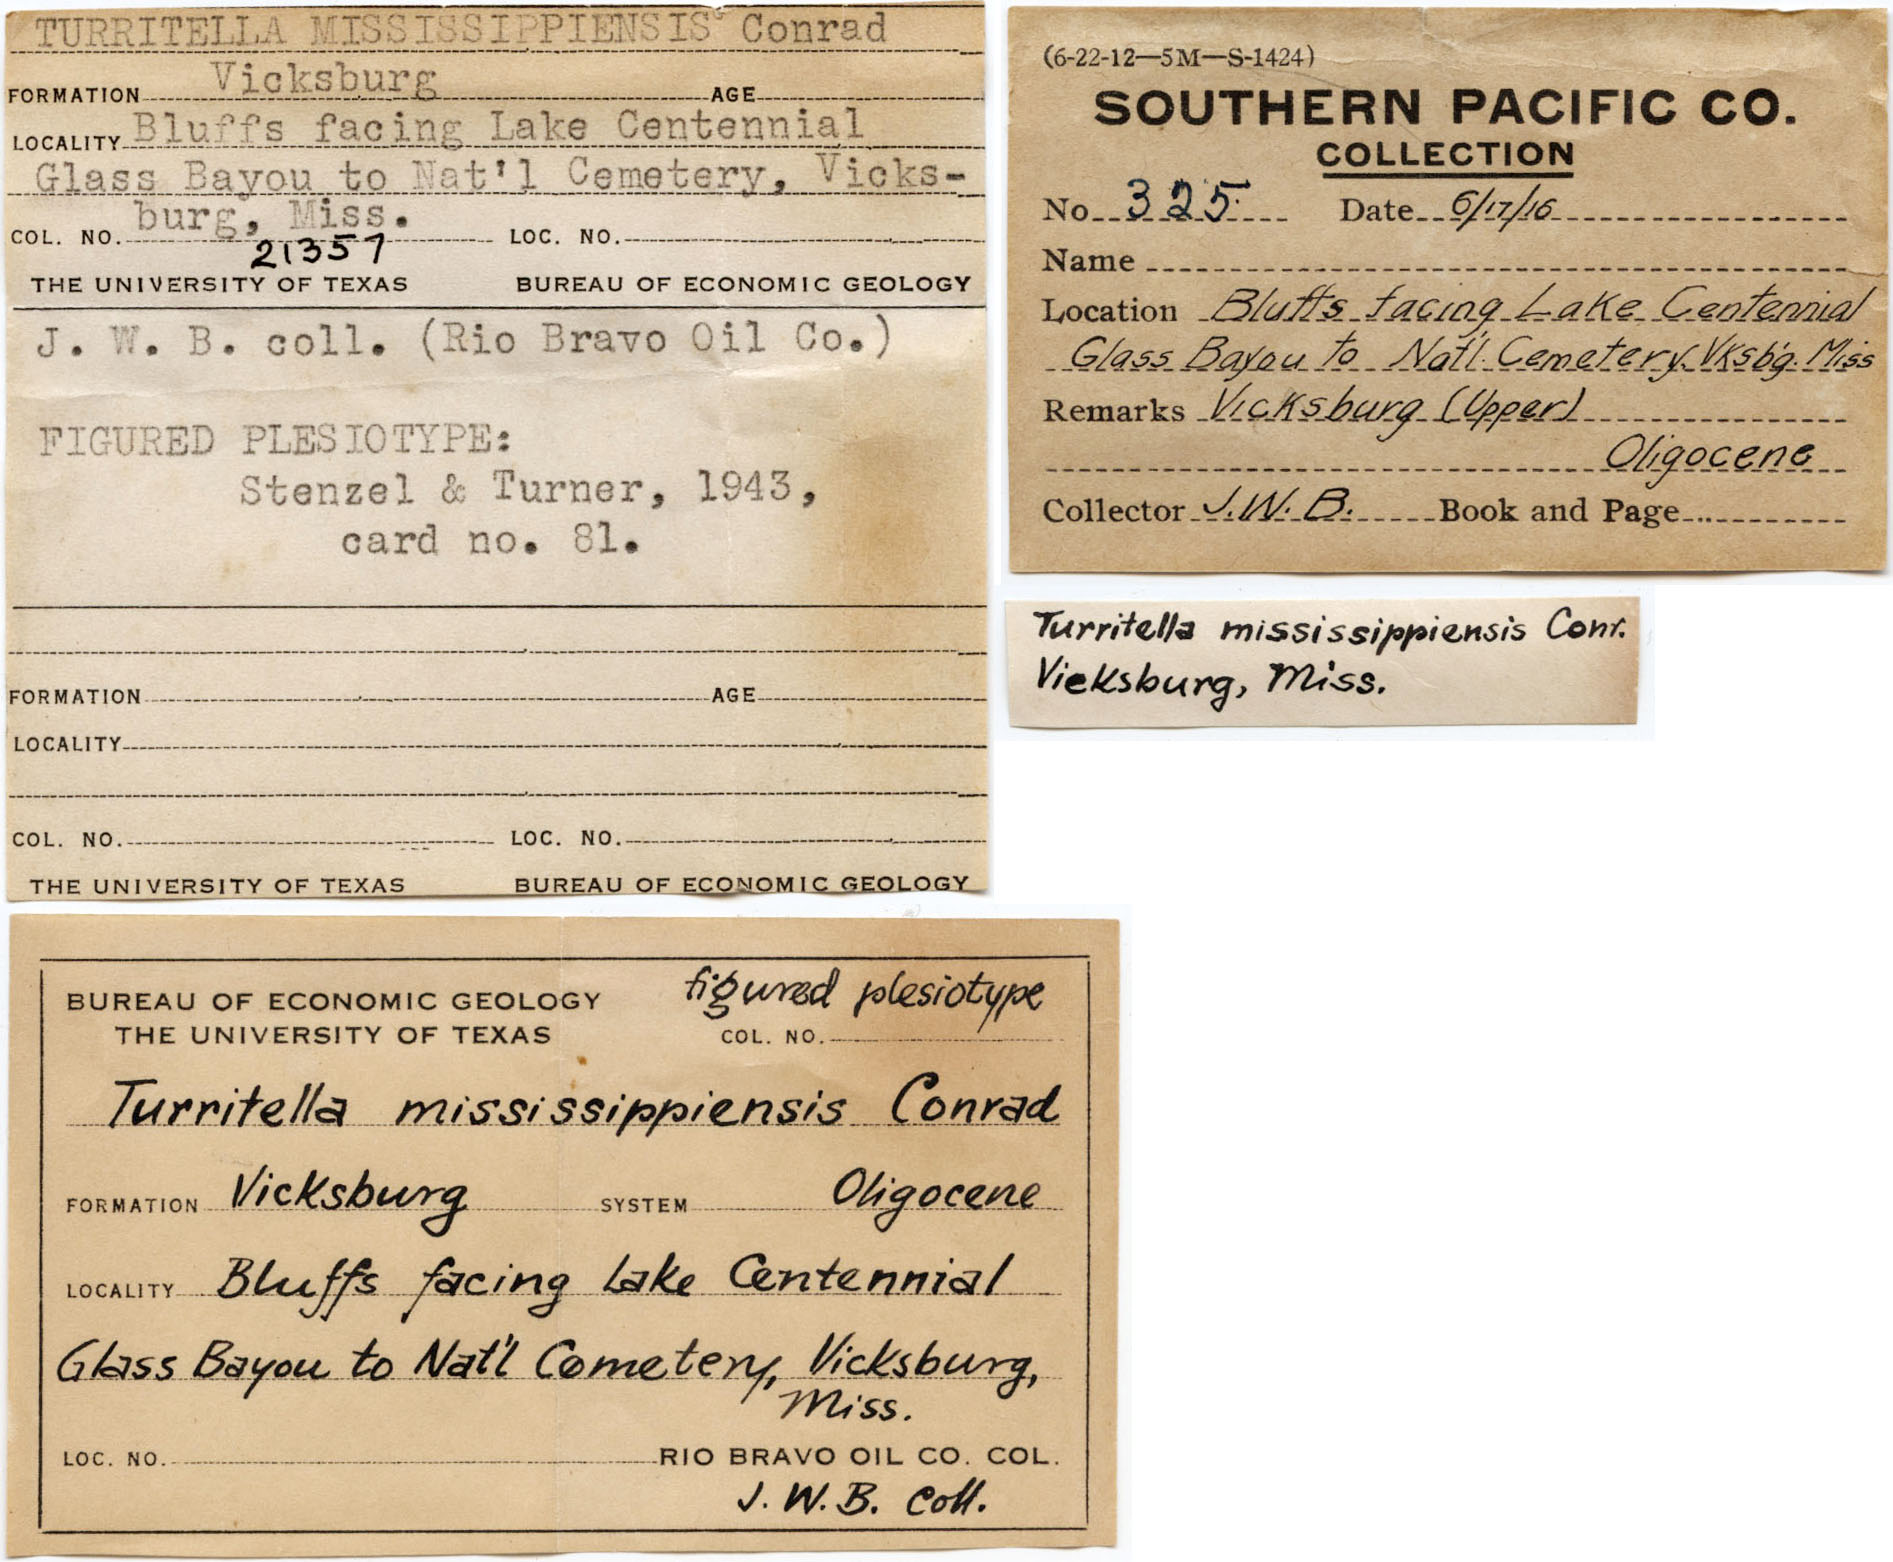 TURRITELLA MISSISSIPPIENSIS Conrad
FORMATION Vicksburg AGE
LOCALITY Bluffs facing Lake Centennial
Glass Bayou to Nat'l Cemetery, Vicks-
burg, Miss.
COL. NO. 21357 LOC. NO.
THE UNIVERSITY OF TEXAS BUREAU OF ECONOMIC GEOLOGY
J. W. B. coll. (Rio Bravo Oil Co.)
FIGURED PLESIOTYPE:
Stenzel & Turner, 1943,
card no. 81.
FORMATION AGE
LOCALITY
COL. NO. LOC. NO.
THE UNIVERSITY OF TEXAS BUREAU OF ECONOMIC GEOLOGY
(6-22-12—5M—S-1424)
SOUTHERN PACIFIC CO.
COLLECTION
No. 325 Date 6/17/16
Name
Location Bluffs facing Lake Centennial
Glass Bayou to Nat'l. Cemetery. Vksb'g. Miss
Remarks Vicksburg (Upper)
Oligocene
Collector J.W.B. Book and Page
Turritella mississippiensis Conr.
Vicksburg, Miss.
BUREAU OF ECONOMIC GEOLOGY figured plesiotype
THE UNIVERSITY OF TEXAS COL. NO.
Turritella mississippiensis Conrad
FORMATION Vicksburg SYSTEM Oligocene
LOCALITY Bluffs facing Lake Centennial
Glass Bayou to Nat'l Cemetery, Vicksburg,
Miss.
LOC. NO. RIO BRAVO OIL CO. COL.
J. W. B. Coll.